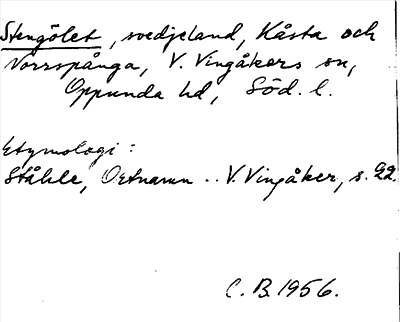 Stengölet, svedjeland, Kåsta och
Norrspånga, V. Vingåkers sn,
Oppunda hd, Söd. l.
Etymologi:
Ståhle, Ortnamn .. V. Vingåker, s. 22.
C. B. 1956.